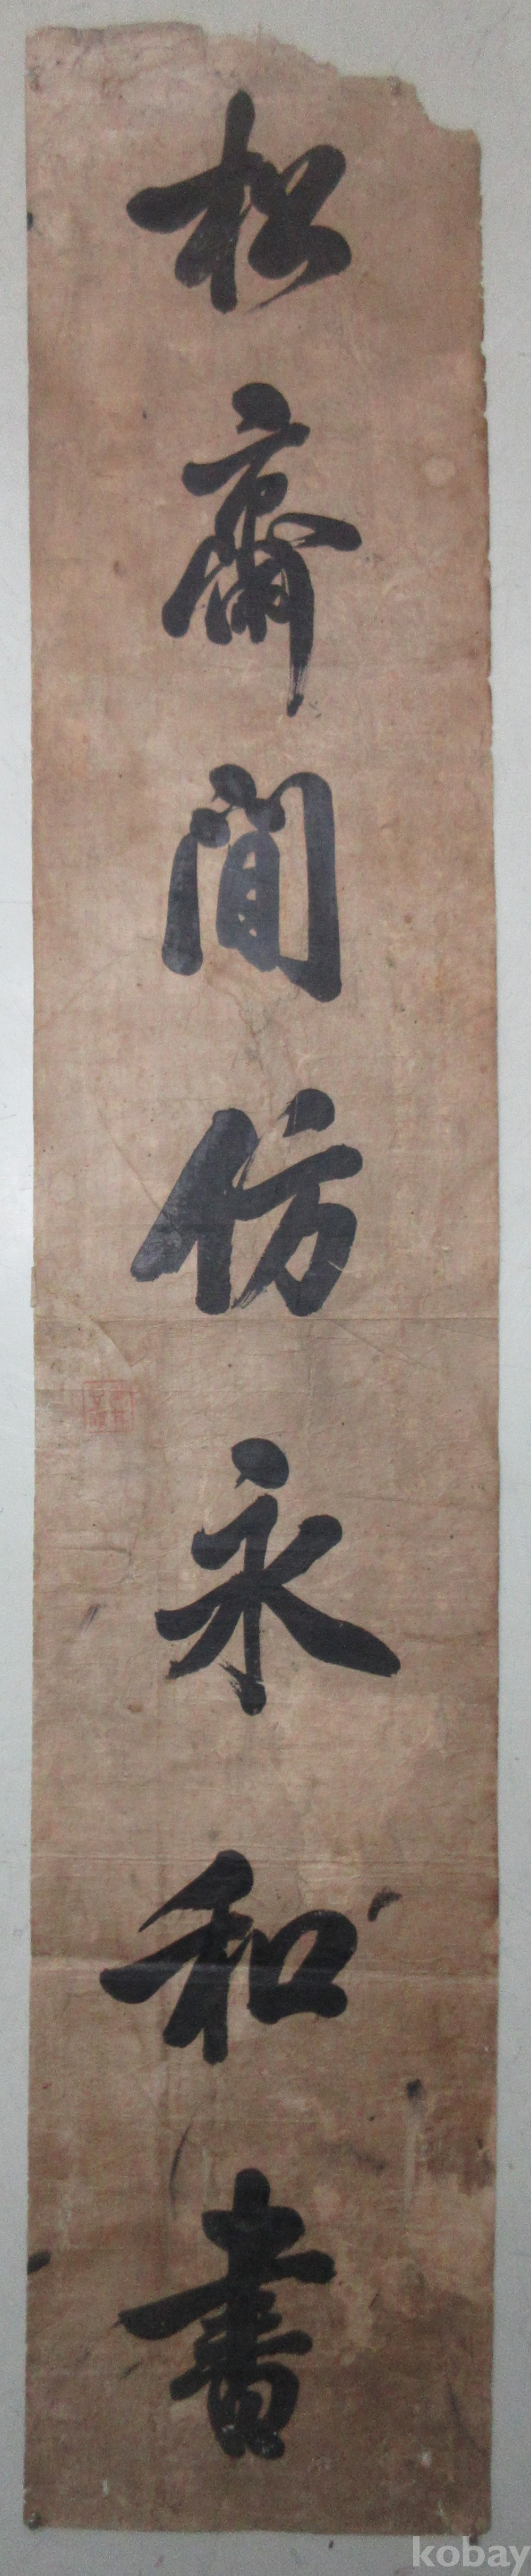 松齋閒仿永和書
kobay